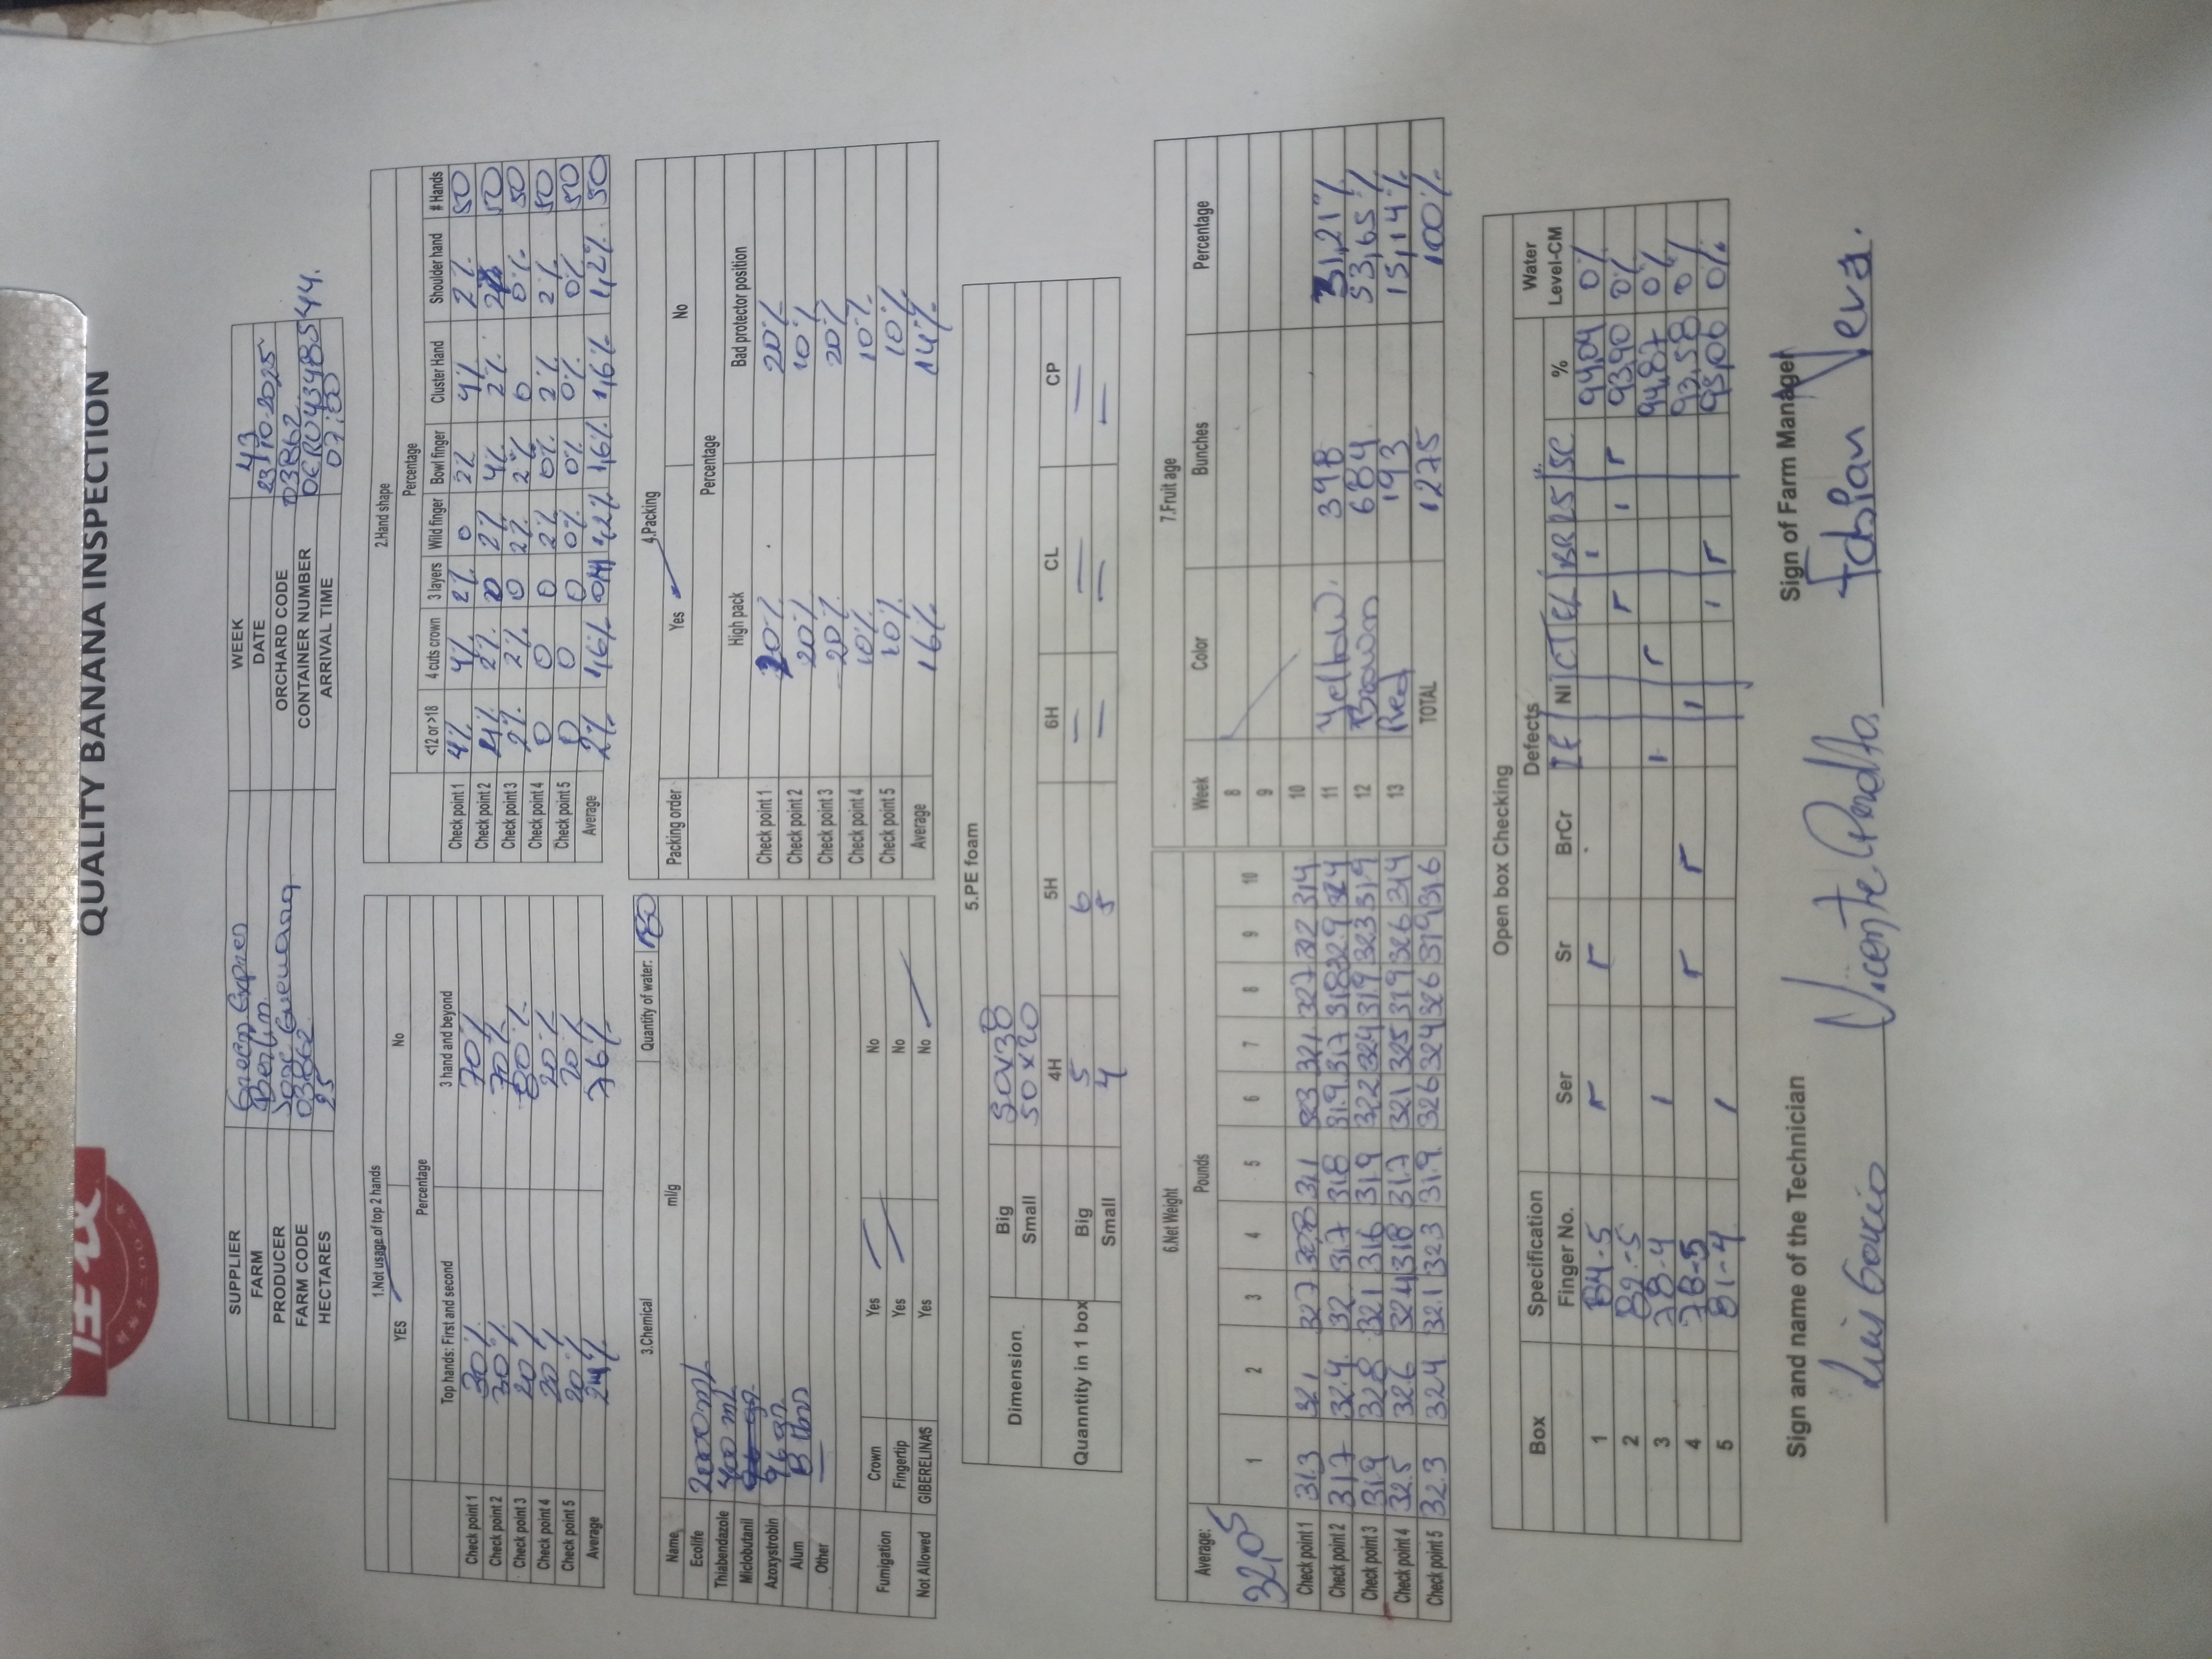 QUALITY BANANA INSPECTION
SUPPLIER Green Expres WEEK 43
FARM Berlin DATE 23-10-2025
PRODUCER Jose ORCHARD CODE 03862
FARM CODE 03862 CONTAINER NUMBER
HECTARES 25 ARRIVAL TIME 07:00
1.Not usage of top 2 hands
YES No
Percentage
Top hands: First and second 3 hand and beyond
Check point 1 30% 70%
Check point 2 30% 70%
Check point 3 20% 80%
Check point 4 20% 20%
Check point 5 20% 20%
Average 24% 76%
2.Hand shape
Percentage
<12 or >18 4 cuts crown 3 layers Wild finger Bowl finger Cluster Hand Shoulder hand # Hands
Check point 1 4% 4% 2% 0 2% 4% 2% 50
Check point 2 4% 2% 0 2% 4% 2% 2% 50
Check point 3 2% 2% 0 2% 2% 0 0% 50
Check point 4 0 0 0 2% 0% 2% 2% 50
Check point 5 0 0 0 0% 0% 0% 0% 50
Average 2% 1,6% 1,2% 1,6% 1,6% 1,2% 50
3.Chemical Quantity of water:
Name ml/g
Ecolife 2000 mL
Thiabendazole 400 mL
Miclobutanil
Azoxystrobin 96 gr
Alum 8
Other —
Fumigation Crown Yes No
Fingertip Yes No
Not Allowed GIBERELINAS Yes No
4.Packing
Packing order Yes No
Percentage
High pack Bad protector position
Check point 1 20% 20%
Check point 2 20% 10%
Check point 3 20% 20%
Check point 4 10% 10%
Check point 5 10% 10%
Average 16% 14%
5.PE foam
Dimension Big 50x38
Small 50x20
4H 5H 6H CL CP
Quanntity in 1 box Big 5 6 — — —
Small 4 5 — — —
6.Net Weight
Average: Pounds
32,05 1 2 3 4 5 6 7 8 9 10
Check point 1 31.3 32,1 327 308 31,1 323 321 327 312 314
Check point 2 31.7 32.4 32 31.7 318 31.9 31.7 318 32.9 324
Check point 3 31.9 328 321 316 319 322 324 319 323 319
Check point 4 32.5 32.6 324 318 31.7 321 325 319 326 314
Check point 5 32.3 324 32.1 323 31.9 326 324 326 319 316
7.Fruit age
Week Color Bunches Percentage
8
9
10
11 Yellow 398 31,21%
12 Brown 684 53,65%
13 Red 193 15,14%
TOTAL 1275 100%
Open box Checking
Box Specification Defects Water
Finger No. Ser Sr BrCr NI CT BR LS SC % Level-CM
1 84-5 94,04 0%
2 82-5 93,90 0%
3 78-4 94,87 0%
4 78-5 93,58 0%
5 81-4 95,06 0%
Sign and name of the Technician Sign of Farm Manager
Luis Garcia Vicente Peralta. Fabian Vera.